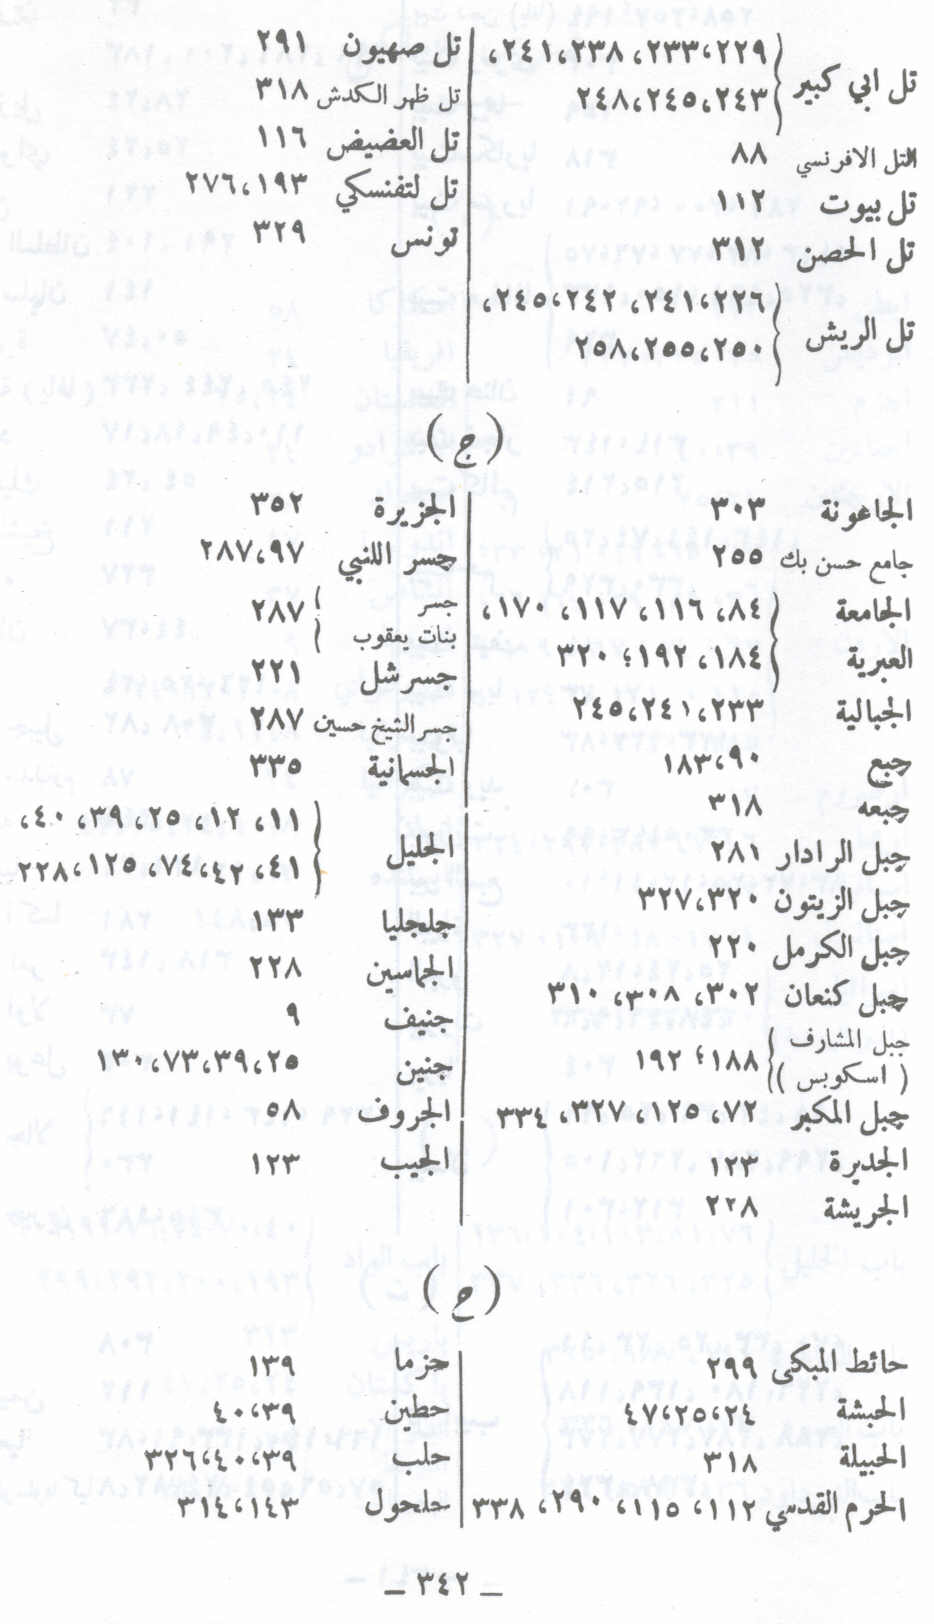 تل ابي كبير ٢٢٩،٢٣٣، ٢٣٨،٢٤١،
٢٤٣،٢٤٥،٢٤٨
التل الافرنسي ٨٨
تل بيوت ١١٢
تل الحصن ٣١٢
تل الريش ٢٢٦،٢٤١، ٢٤٢،٢٤٥،
٢٥٠،٢٥٥،٢٥٨
تل صهيون ٢٩١
تل ظهر الكدش ٣١٨
تل العضيض ١١٦
تل لتفنسكي ١٩٣،٢٧٦
تونس ٣٢٩
(ج)
الجاعونة ٣٠٣
جامع حسن بك ٢٥٥
الجامعة ٨٤، ١١٦، ١١٧، ١٧٠،
العبرية ١٨٤، ١٩٢، ٣٢٠
الجبالية ٢٣٣،٢٤١،٢٤٥
جبع ٩٠،١٨٣
جبعه ٣١٨
جبل الرادار ٢٨١
جبل الزيتون ٣٢٠،٣٢٧
جبل الكرمل ٢٢٠
جبل كنعان ٣٠٢، ٣٠٨، ٣١٠
جبل المشارف ١٨٨، ١٩٢
(اسكوبس)
جبل المكبر ٧٢، ١٢٥، ٣٢٧، ٣٣٤
الجديرة ١٢٣
الجريشة ٢٢٨
الجزيرة ٣٥٢
جسر اللنبي ٩٧،٢٨٧
جسر
بنات يعقوب ٢٨٧
جسر شل ٢٢١
جسر الشيخ حسين ٢٨٧
الجسمانية ٣٣٥
الجليل ١١، ١٢، ٢٥، ٣٩، ٤٠،
٤١، ٤٢، ٧٤، ١٢٥، ٢٢٨
جلجليا ١٣٣
الجماسين ٢٢٨
جنيف ٩
جنين ٢٥،٣٩،٧٣،١٣٠
الجروف ٥٨
الجيب ١٢٣
(ح)
حائط المبكى ٢٩٩
الحبشة ٢٤،٢٥،٤٧
الحبيلة ٣١٨
الحرم القدسي ١١٢، ١١٥، ٢٩٠، ٣٣٨
حزما ١٣٩
حطين ٣٩،٤٠
حلب ٣٩،٤٠،٣٢٦
حلحول ١٤٣،٣١٤
– ٣٤٢ –